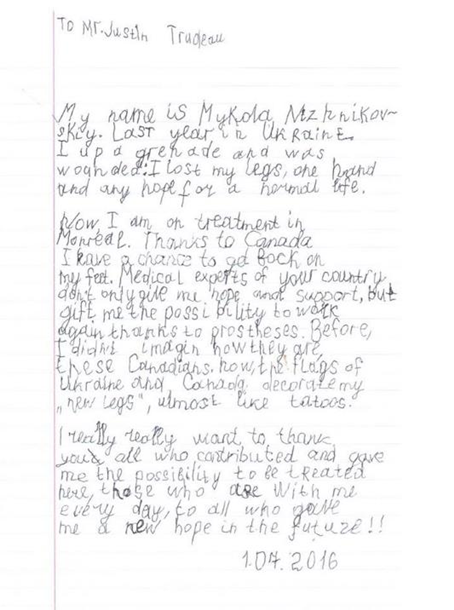 To Mr. Justin Trudeau
My name is Mykola Nizhnikov~
skiy. Last year in Ukraine
I up a grenade and was
woghded. I lost my legs, one hand
and any hope for a normal life.
Now, I am on treatment in
Monreal. Thanks to Canada
I have a chance to go back on
my feet. Medical experts of your country
don't only give me hope and support, but
gift me the possibility to work
again thanks to prostheses. Before,
I didnt imagin how they are,
these Canadians. now, the flags of
Ukraine and Canada decorate my
„new legs", almost like tatoos.
I really really want to, thank
you all who contributed and gave
me the possibility to be treated
here, those who are with me
every day, to all who gave
me a new hope in the future!!
1.07. 2016